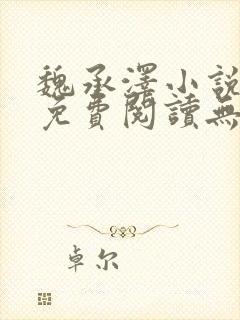 魏承澤小說
免費閱讀無
卓尔